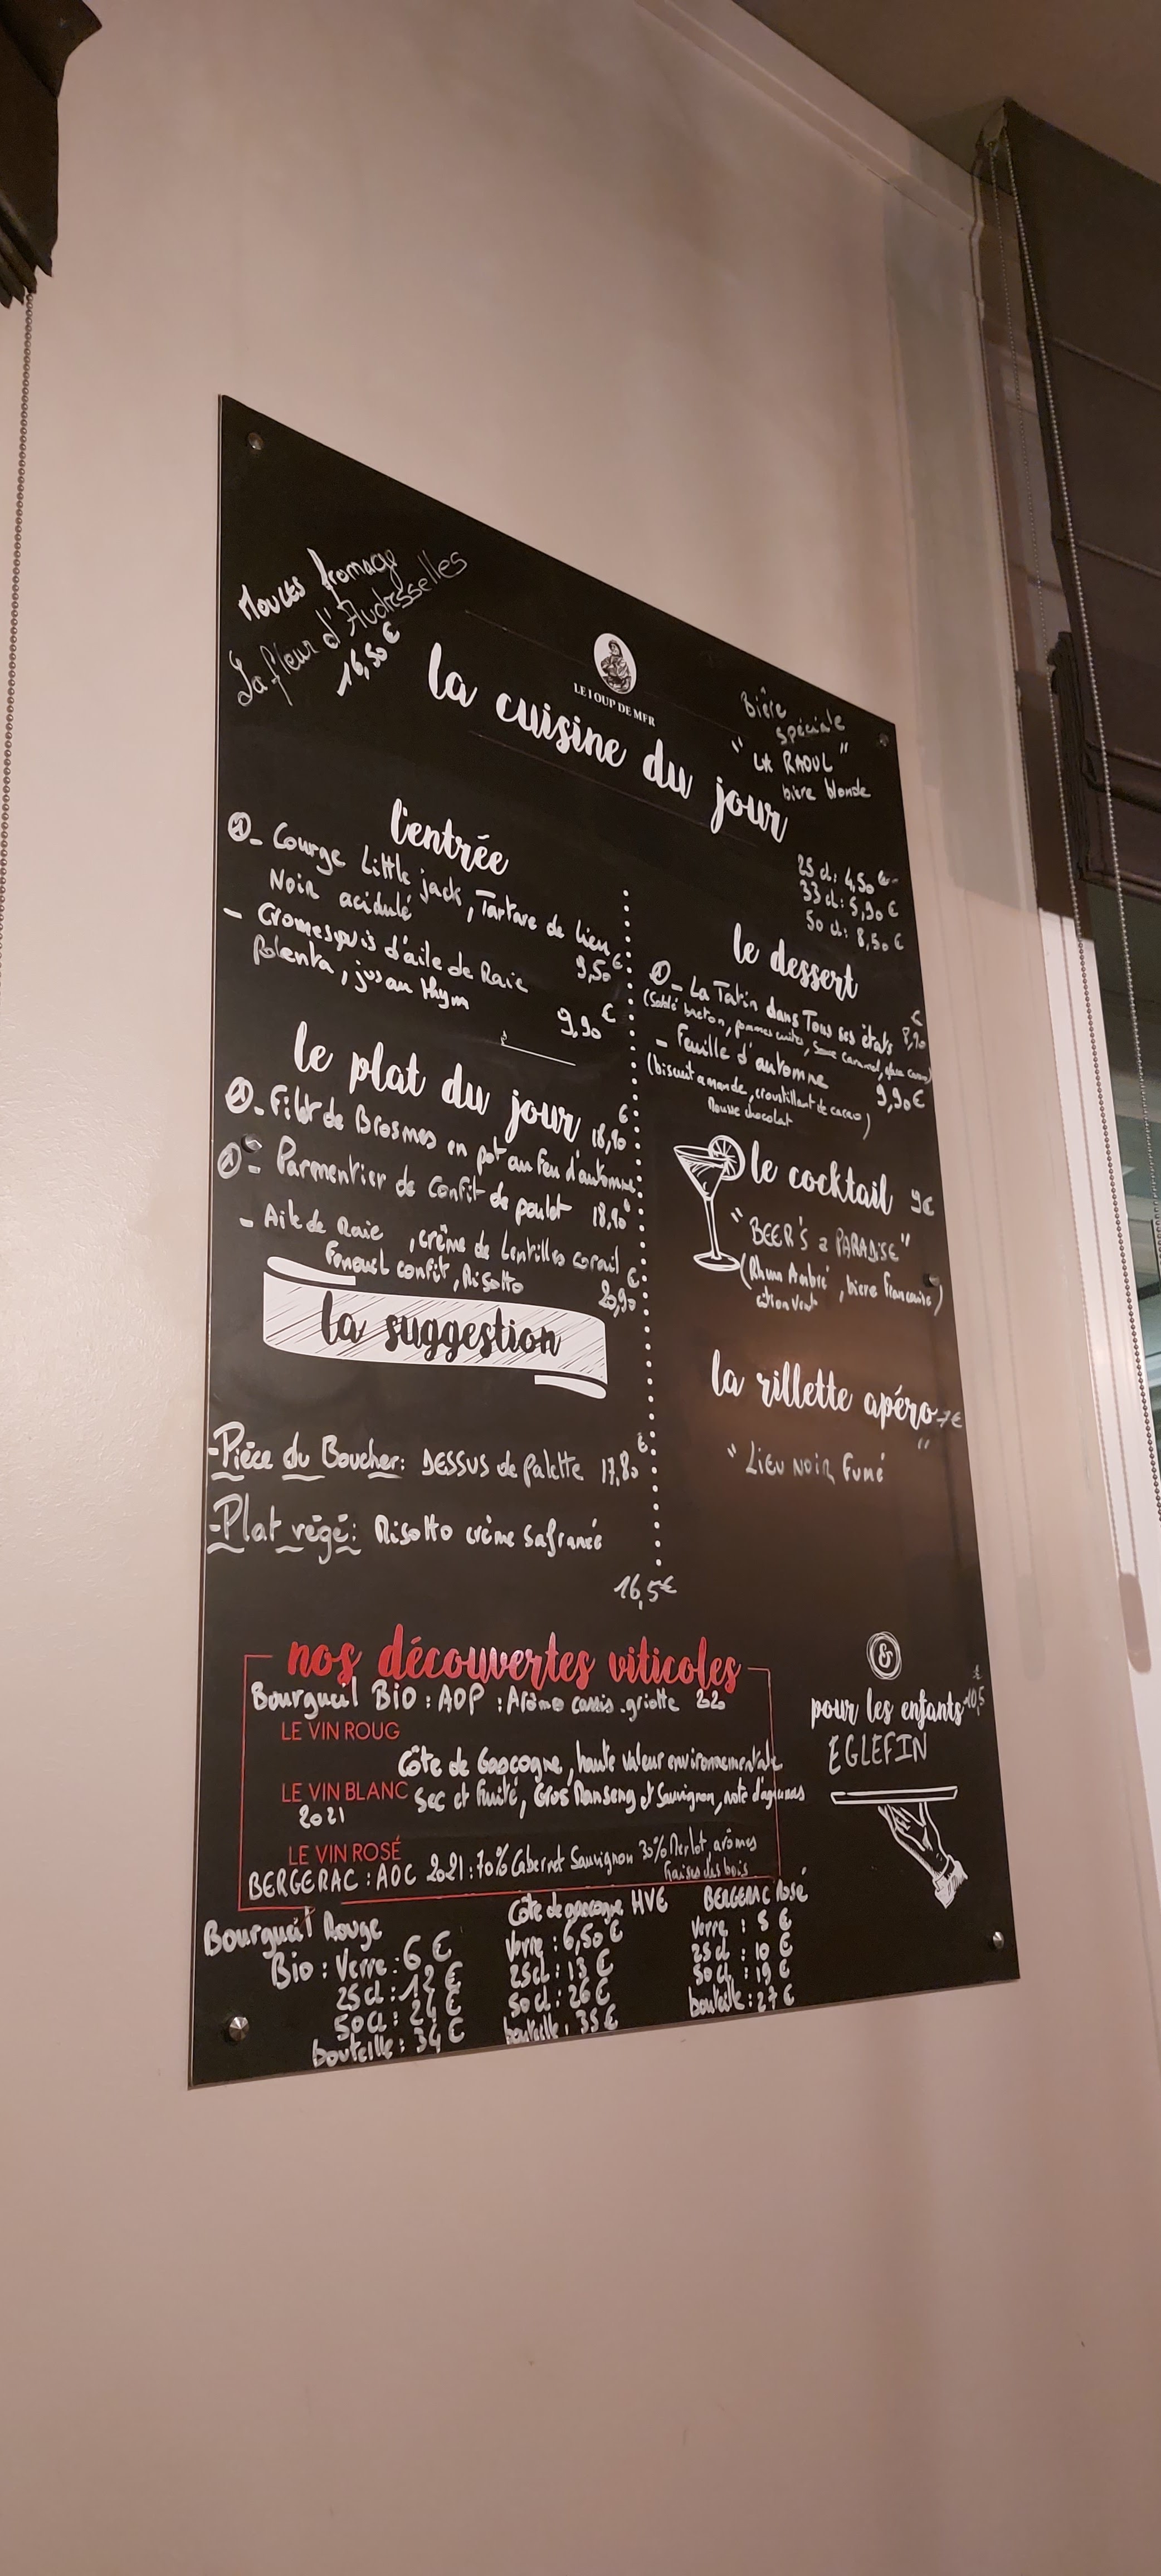 Moules fromage
La fleur d'Audresselles
16,50€
LE LOUP DE MER
la cuisine du jour
Bière
spéciale
"LA RAOUL"
bière blonde
25 cl: 4,50 €
33 cl: 5,90 €
50 cl: 8,50 €
l'entrée
- Courge Little jack, Tartare de lieu
Noir acidulé
9,50 €
- Cromesquis d'aile de Raie
Polenta, jus au thym
9,90 €
le plat du jour
- Filet de Brosmes en pot au feu d'automne
18,90 €
- Parmentier de confit de poulet 18,90 €
- Aile de Raie, crème de lentilles corail
Fenouil confit, Risotto
20,90 €
la suggestion
-Pièce du Boucher: DESSUS de palette 17,80 €
-Plat végé: Risotto crème safranée
16,5€
le dessert
- La Tatin dans Tous ses états 8,90 €
(Sablé breton, pommes cuites, caramel,
- Feuille d'automne
9,90€
(biscuit amande, croustillant de cacao)
Mousse chocolat
le cocktail 9€
"BEER'S a PARADISE"
(Rhum Ambré, bière Francaise)
citron vert
la rillette apéro 7€
"LIEU NOIR Fumé"
nos découvertes viticoles
Bourgueil BIO : AOP : Arôme cassis griotte
LE VIN ROUG
Côte de Gascogne, haute valeur environnementale
LE VIN BLANC Sec et fruité, Gros Manseng et Sauvignon, note d'agrumes
2021
LE VIN ROSÉ
BERGERAC : AOC 2021 : 70% Cabernet Sauvignon 30% Merlot arômes
fraises des bois
&
pour les enfants 10,5 €
EGLEFIN
Bourgueil Rouge
Bio : Verre : 6 €
25 cl : 12 €
50 cl : 24 €
bouteille : 34 €
Côte de gascogne HVE
Verre : 6,50 €
25cl : 13 €
50 cl : 26 €
bouteille : 35 €
BERGERAC Rosé
Verre : 5 €
25 cl : 10 €
50 cl : 19 €
bouteille : 27 €